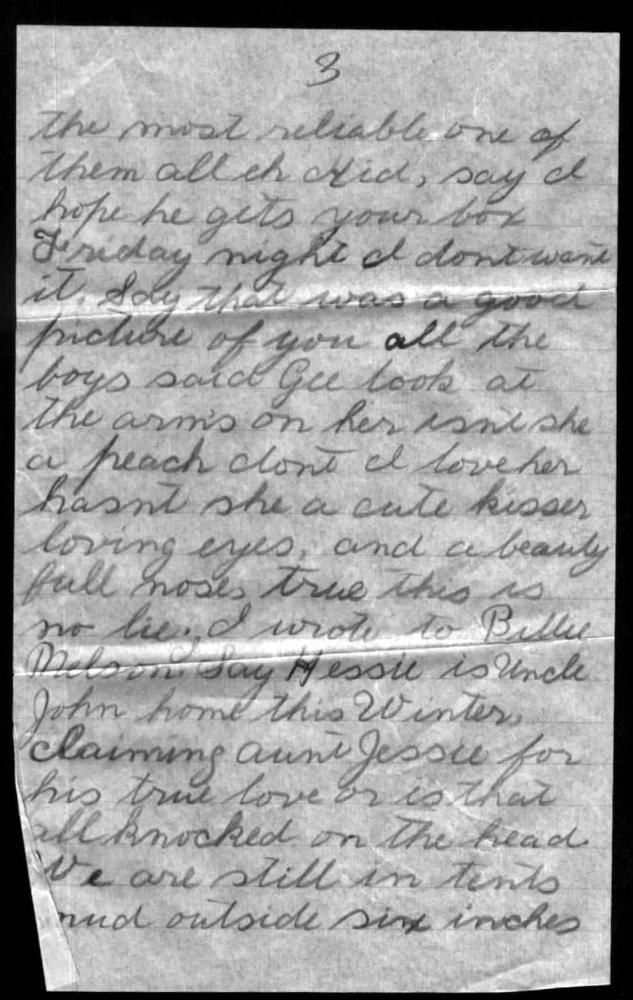 3
the most reliable one of
them all eh Kid, say I
hope he gets your box
Friday night I dont want
it. Say that was a good
picture of you all the
boys said Gee look at
the arms on her isnt she
a peach dont I love her
hasnt she a cute kisser
loving eyes, and a beauty
full noses true this is
no lie. I wrote to Billie
Melson. Say Hessie is Uncle
John home this Winter,
claiming aunt Jessie for
his true love or is that
all knocked on the head.
We are still in tents
mud outside six inches